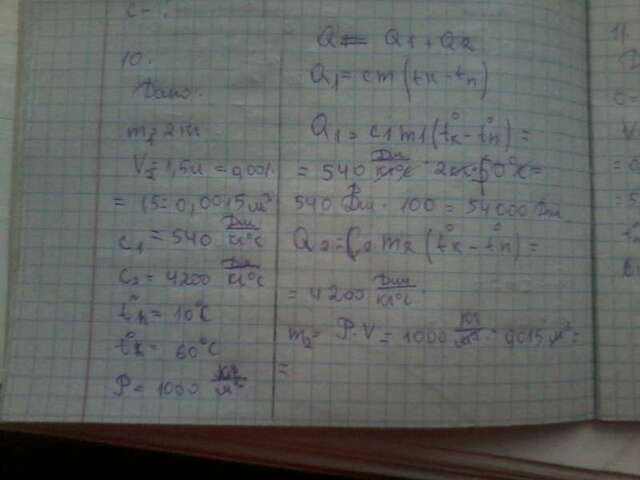 10.
Дано:
m1 = 2 кг
V2 = 1,5 л = 0,001 ·
· 1,5 = 0,0015 м³
c1 = 540 Дж/кг°C
c2 = 4200 Дж/кг°C
t°н = 10°C
t°к = 60°C
P = 1000 кг/м³
Q = Q1 + Q2
Q1 = cm (tк - tн)
Q1 = c1 m1 (t°к - t°н) =
= 540 Дж/кг°C · 2кг · 50°C =
540 Дж · 100 = 54000 Дж
Q2 = C2 m2 (t°к - t°н) =
= 4200 Дж/кг°C ·
m2 = P · V = 1000 кг/м³ · 0,0015 м³ =
=
11.